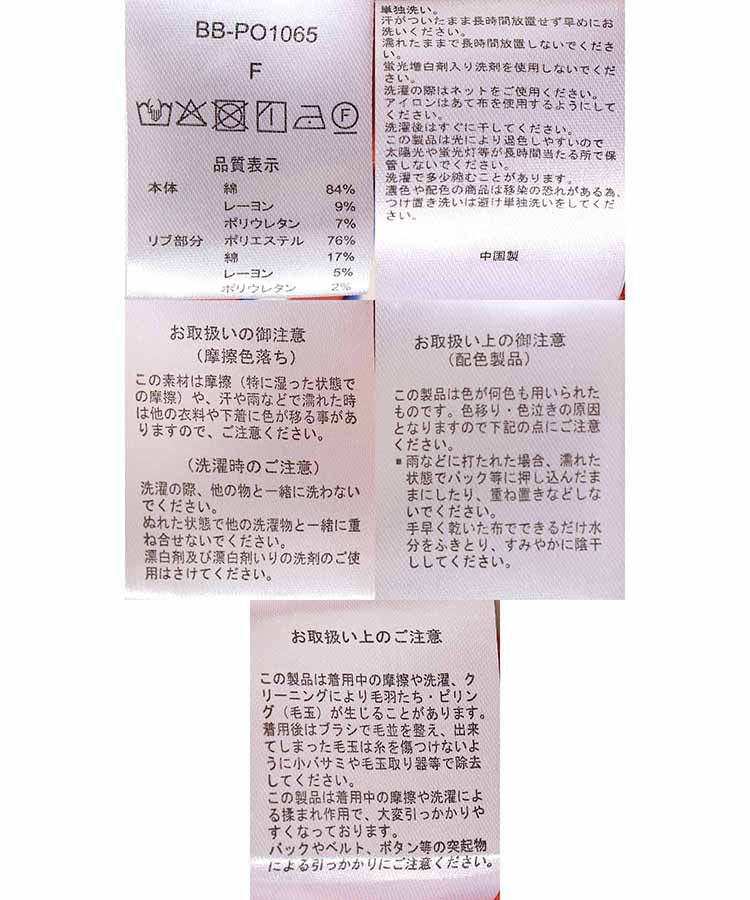 BB-PO1065
F
品質表示
本体 綿 84%
レーヨン 9%
ポリウレタン 7%
リブ部分 ポリエステル 76%
綿 17%
レーヨン 5%
ポリウレタン 2%
単独洗い。
汗がついたまま長時間放置せず早めにお
洗いください。
濡れたままで長時間放置しないでくださ
い。
蛍光増白剤入り洗剤を使用しないでくだ
さい。
洗濯の際はネットをご使用ください。
アイロンはあて布を使用するようにして
ください。
洗濯後はすぐに干してください。
この製品は光により退色しやすいので
太陽光や蛍光灯等が長時間当たる所で保
管しないでください。
洗濯で多少縮むことがあります。
濃色や配色の商品は移染の恐れがある為、
つけ置き洗いは避け単独洗いをしてくだ
さい。
中国製
お取扱いの御注意
(摩擦色落ち)
この素材は摩擦（特に湿った状態で
の摩擦）や、汗や雨などで濡れた時
は他の衣料や下着に色が移る事があ
りますので、ご注意ください。
(洗濯時のご注意)
洗濯の際、他の物と一緒に洗わない
でください。
ぬれた状態で他の洗濯物と一緒に重
ね合せないでください。
漂白剤及び漂白剤いりの洗剤のご使
用はさけてください。
お取扱い上の御注意
(配色製品)
この製品は色が何色も用いられた
ものです。色移り・色泣きの原因
となりますので下記の点にご注意
ください。
■雨などに打たれた場合、濡れた
状態でバック等に押し込んだま
まにしたり、重ね置きなどしな
いでください。
手早く乾いた布でできるだけ水
分をふきとり、すみやかに陰干
ししてください。
お取扱い上のご注意
この製品は着用中の摩擦や洗濯、ク
リーニングにより毛羽たち・ピリン
グ（毛玉）が生じることがあります。
着用後はブラシで毛並を整え、出来
てしまった毛玉は糸を傷つけないよ
うに小バサミや毛玉取り器等で除去
してください。
この製品は着用中の摩擦や洗濯によ
る揉まれ作用で、大変引っかかりや
すくなっております。
バックやベルト、ボタン等の突起物
による引っかかりにご注意ください。